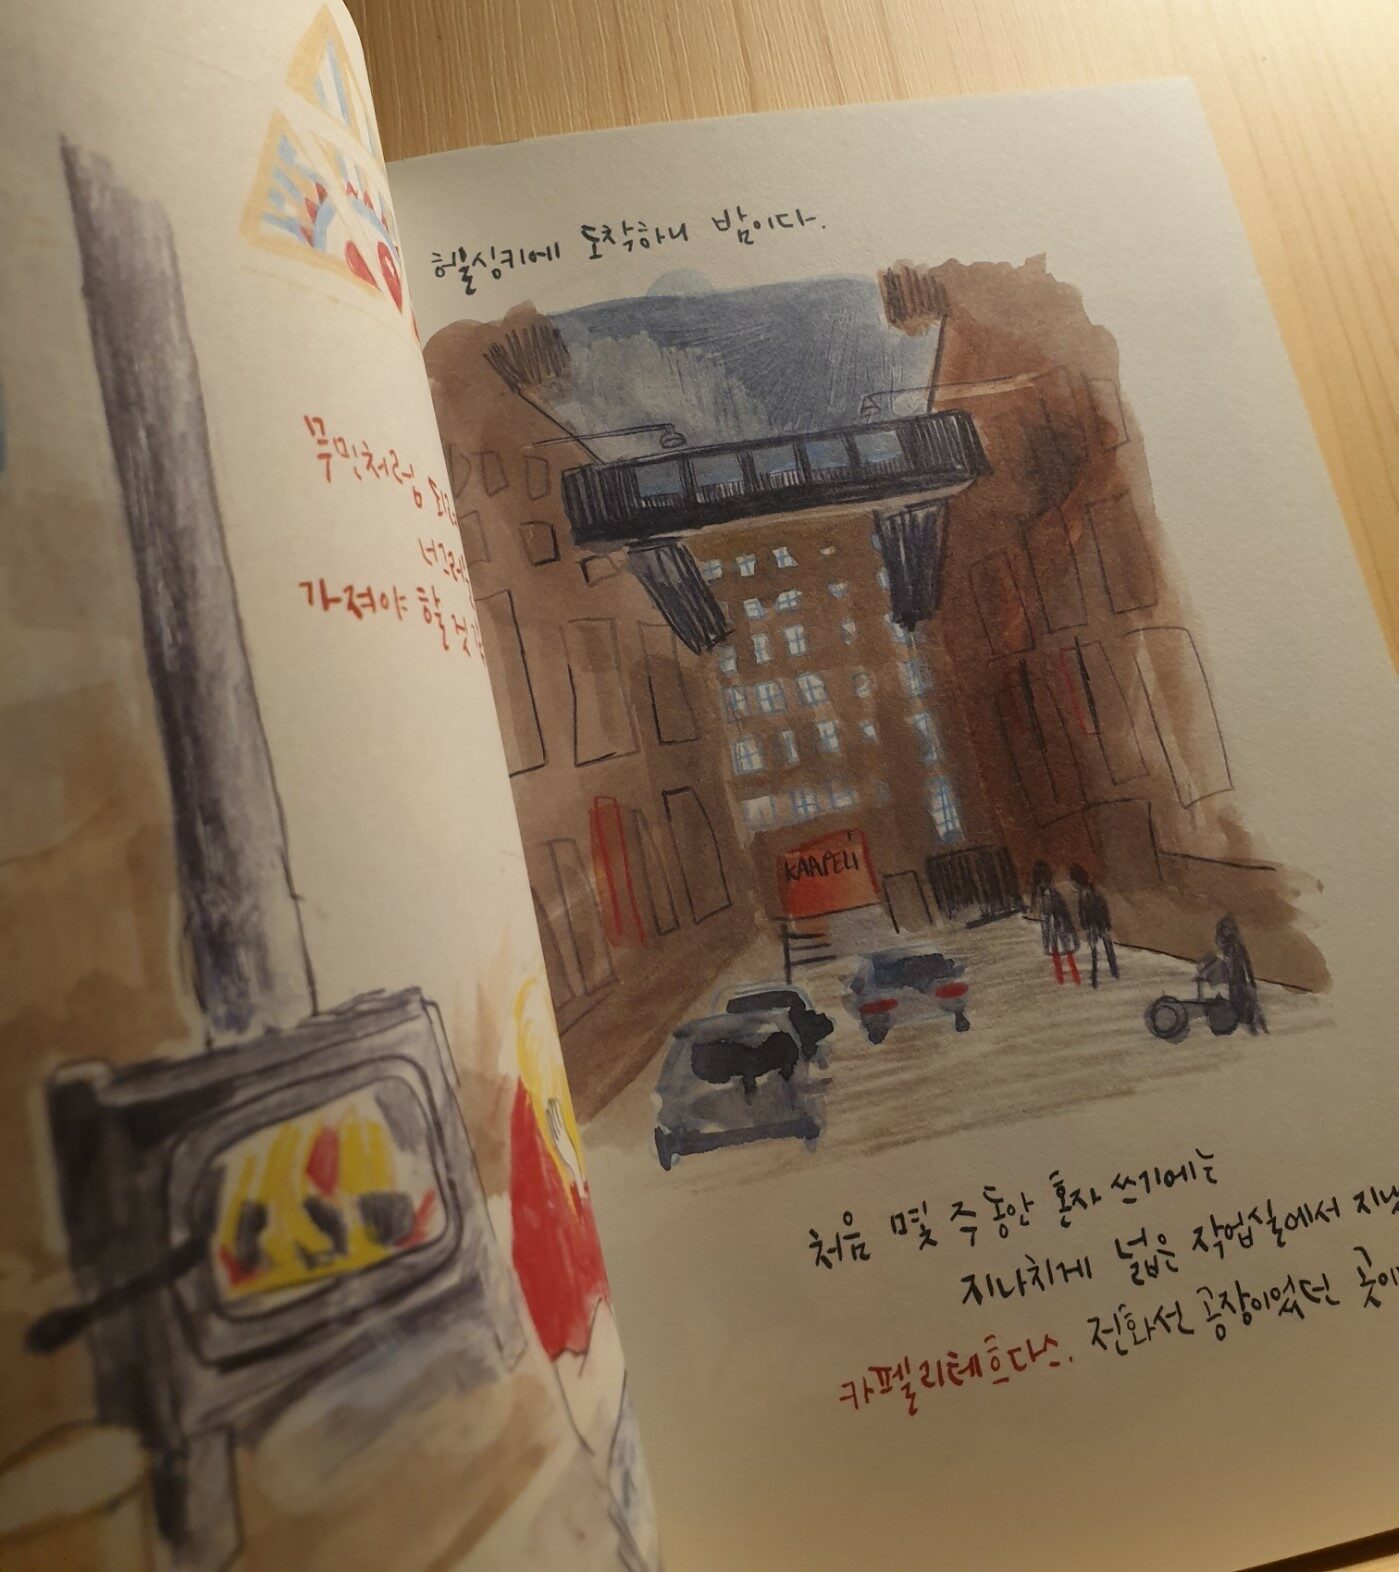 무민처럼
너그러
가져야 할 것
헬싱키에 도착하니 밤이다.
KAAPELI
처음 몇 주 동안 혼자 쓰기에는
지나치게 넓은 작업실에서
카펠리테흐다스. 전화선 공장이었던